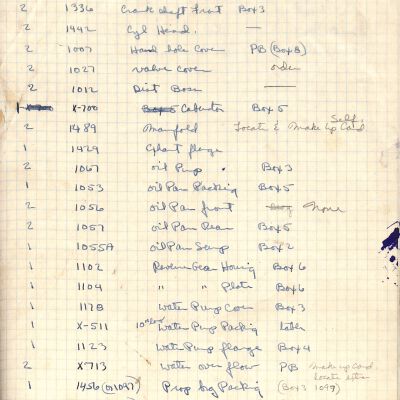 2 1336 Crankshaft Frot Box 3
2 1442 Cyl Head. —
2 1007 Hand hole Cover PB (Box 8)
2 1027 valve Cover order
2 1012 Dist Base —
1 X-700 Box 5 Caburtor Box 5
Self.
2 1489 Manfold Locate & Make up Card
1 1429 flange
2 1067 oil Pump Box 3
1 1053 oil Pan Packing Box 5
2 1056 oil Pan front None
2 1057 oil Pan Rear Box 5
1 1055A oil Pan Sump Box 2
1 1102 Reverse Gear Housing Box 6
1 1104 " " Plate Box 6
1 1178 Water Pump Cover Box 3
1 X-511 Water Pump Packing Later
1 1123 Water Pump flange Box 4
2 X-713 Water over flow PB Make up Card.
Locate
1 1456 (01097) Prop Lg Packing (Box 3 1097)